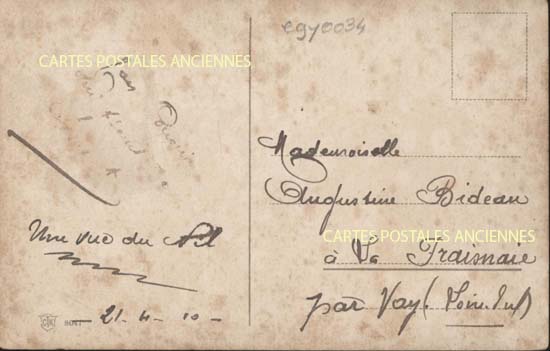 egy0034
CARTES POSTALES ANCIENNES
Une vue du Nil
21-4-10-
Mademoiselle
Augustine Bideau
CARTES POSTALES ANCIENNES
à La Fraimaie
par Vay (Loire Inf)